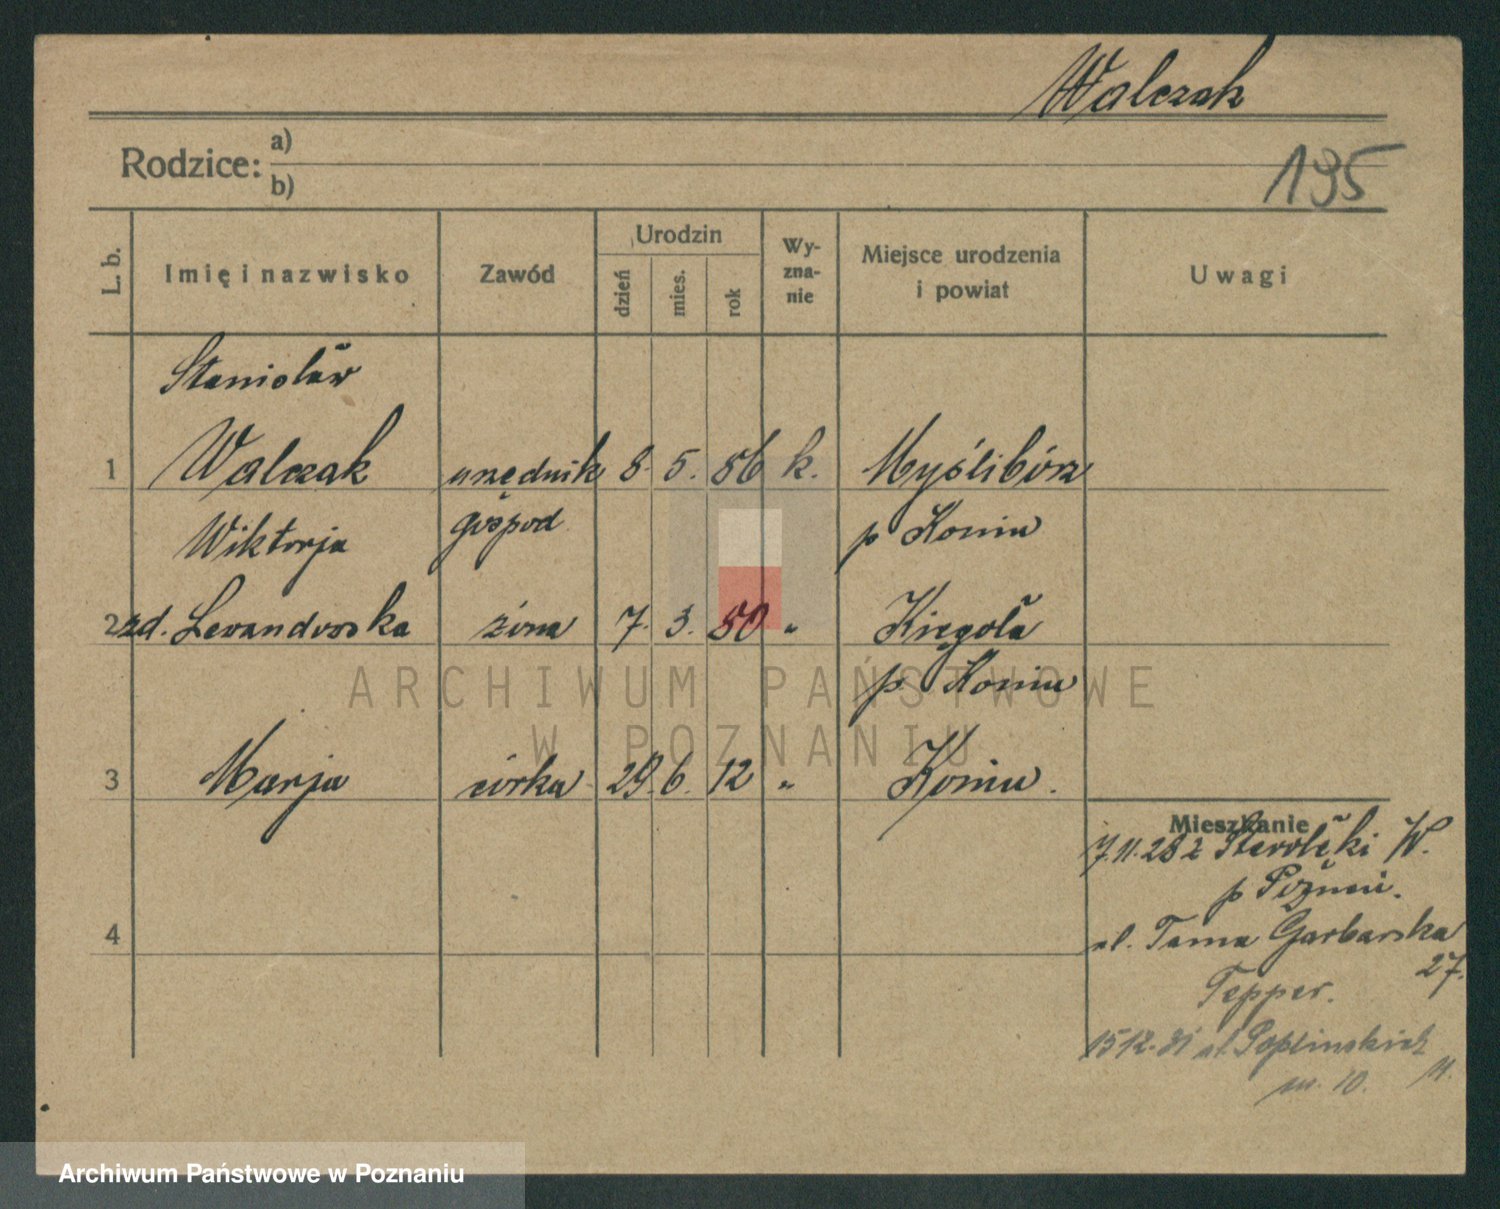 Walczak
Rodzice: a)
b)
195
L. b.
Imię i nazwisko
Zawód
Urodzin
dzień
mies.
rok
Wy-
zna-
nie
Miejsce urodzenia
i powiat
Uwagi
Stanisław
1 Walczak urzędnik 8. 5. 86 k. Myślibórz
Wiktorja gospod. p Konin
2 zd. Levandovska żona 7. 3. 80 „
p Konin
3 Marja córka 29. 6. 12 „ Konin.
Mieszkanie
7.11.28 z Starołęki W.
p Poznań.
4
ul. Tama Garbarska
27.
Tepper.
15 12. 31 ul. Poplinskich
m. 10. 11.
ARCHIWUM PAŃSTWOWE
W POZNANIU
Archiwum Państwowe w Poznaniu